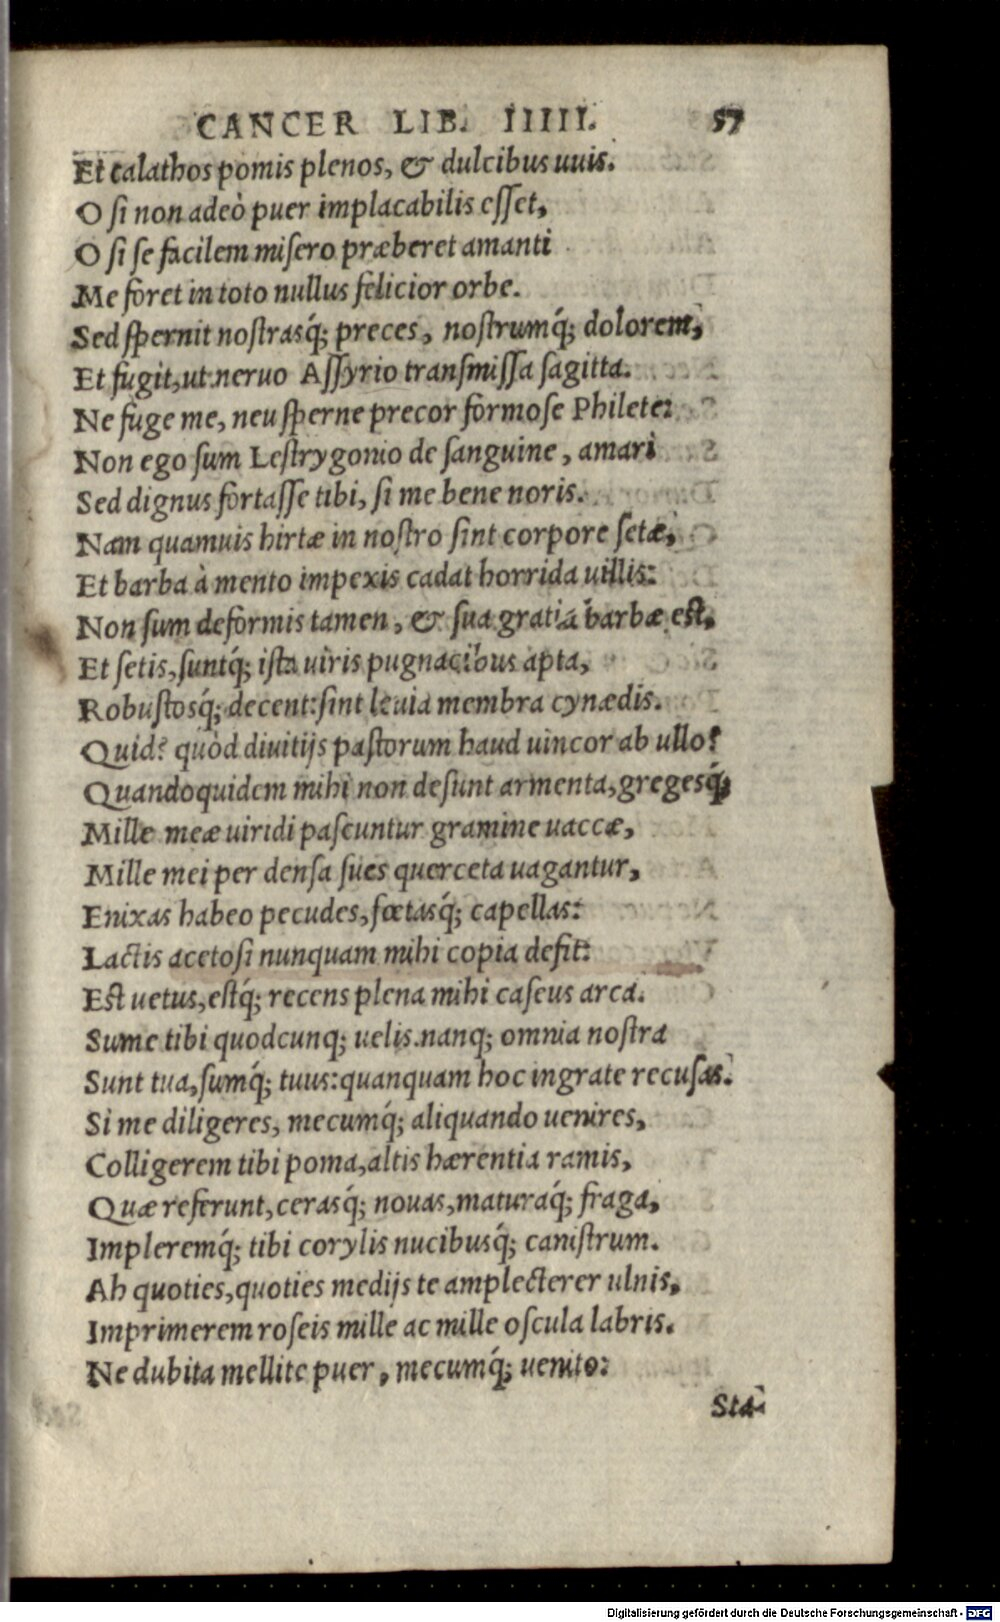 CANCER LIB. IIIII. 57
Et calathos pomis plenos, & dulcibus uuis.
O si non adeò puer implacabilis esset,
O si se facilem misero præberet amanti
Me foret in toto nullus felicior orbe.
Sed spernit nostrasq́; preces, nostrumq́; dolorem,
Et fugit, ut neruo Assyrio transmissa sagitta.
Ne fuge me, neu sperne precor formose Philete:
Non ego sum Lestrygonio de sanguine, amari
Sed dignus fortasse tibi, si me bene noris.
Nam quamuis hirtæ in nostro sint corpore setæ,
Et barba à mento impexis cadat horrida uillis:
Non sum deformis tamen, & sua gratia barbæ est,
Et setis, suntq́; ista uiris pugnacibus apta,
Robustosq́; decent: sint leuia membra cynædis.
Quid? quòd diuitijs pastorum haud uincor ab ullo?
Quandoquidem mihi non desunt armenta, gregesq́;
Mille meæ uiridi pascuntur gramine uaccæ,
Mille mei per densa sues querceta uagantur,
Enixas habeo pecudes, fœtasq́; capellas:
Lactis acetosi nunquam mihi copia defit:
Est uetus, estq́; recens plena mihi caseus arca.
Sume tibi quodcunq; uelis. nanq; omnia nostra
Sunt tua, sumq́; tuus: quanquam hoc ingrate recusas.
Si me diligeres, mecumq́; aliquando uenires,
Colligerem tibi poma, altis hærentia ramis,
Quæ referunt, cerasq́; nouas, maturaq́; fraga,
Impleremq́; tibi corylis nucibusq́; canistrum.
Ah quoties, quoties medijs te amplecterer ulnis,
Imprimerem roseis mille ac mille oscula labris.
Ne dubita mellite puer, mecumq́; uenito:
Sta-
Digitalisierung gefördert durch die Deutsche Forschungsgemeinschaft - DFG